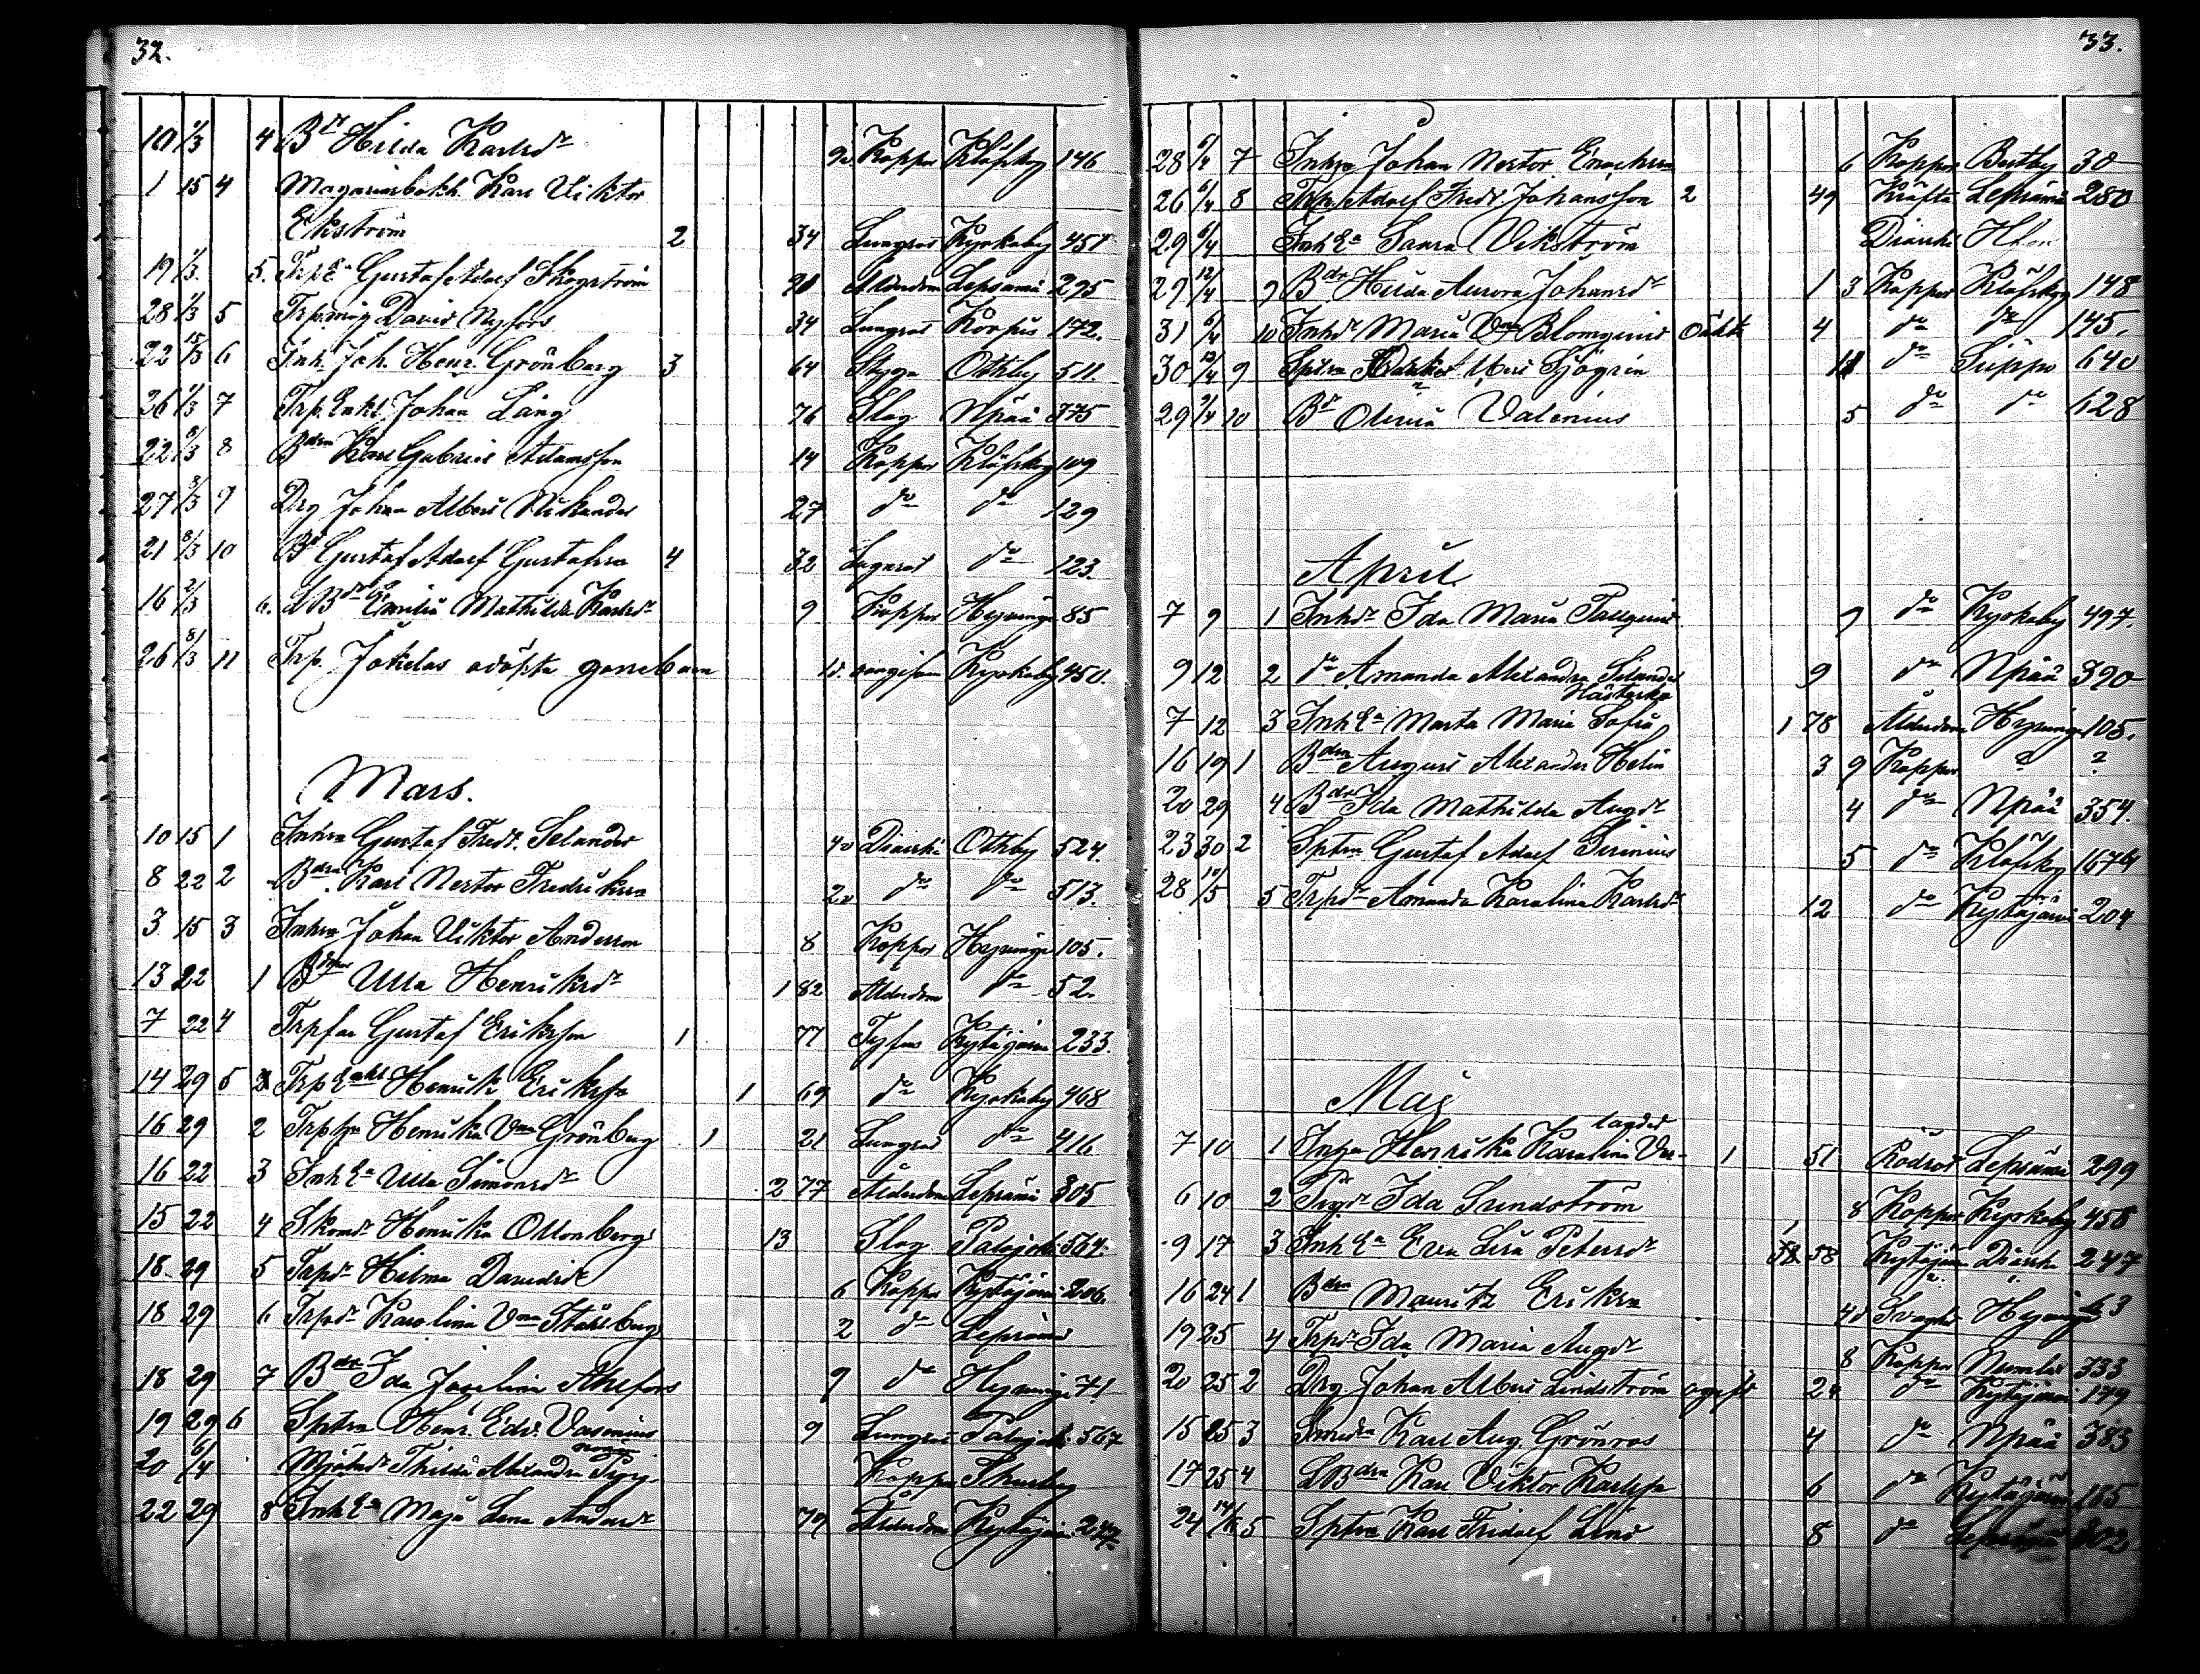 32.
10 1/3 4 Bdr Hilda Karlsdr Koppor Klöfskog 146
1 15 4 Magasinsbokh. Karl Viktor
Ekström 2 34 Lungsot Kyrkoby 451
19 1/3 5. Gustaf Adolf Skogström Ålderdom Lepsämä 295
28 1/3 5 Trpmåg David Nyfors 34 Lungsot Korpis 172.
22 15/3 6 Inh. Joh. Henr. Grönberg 3 64 Stygn Othby 511.
26 1/3 7 Trp. Enkl. Johan Lång 76 Slag Npåå 375
22 8/3 8 Bdsn Karl Gabriel Adamsson 14 Koppor Klöfskog 109
27 8/3 9 Drg Johan Albert Nikander 27 do do 129
21 8/3 10 Bd Gustaf Adolf Gustafsson 4 32 Lugnsot do 123.
16 2/3 6. LBdr Emilia Mathilda Karlsdr 9 Koppor Hyvinge 85
26 8/3 11 Trp. Jokelas odöpta gossebarn oangifven Kyrkoby 450.
Mars.
10 15 1 Inhsn Gustaf Fredr. Selander Diarrhé Othby 524.
8 22 2 Bdsn Karl Nestor Fredriksson do do 513.
3 15 3 Inhsn Johan Viktor Andersson 8 Koppor Hyvinge 105.
13 22 1 Ulla Henriksdr 1 82 Ålderdom do 52.
7 22 4 Trpfar Gustaf Eriksson 1 77 Tyfus Kytäjärvi 233.
14 29 5 TrpEnkl Henrik Eriksson 1 69 do Kyrkoby 468
16 29 2 Trphu Henrika Vma Grönberg 1 21 Lungsot do 416
16 22 3 InhEa Ulla Simonsdr 2 77 Ålderdom Lepsämä 305
15 22 4 Skomdr Henrika Ottonberg 13 Slag Palojoki 564.
18 29 5 Trpdr Hilma Davidsdr 6 Koppor Kytäjärvi 206.
18 29 6 Trpdr Karolina Vma Stålsberg 2 do Lepsämä
18 29 7 Bdr Ida Josefina Ahlfors 9 do Hyvinge 71
19 29 6 Sptsn Henr. Edv. Vasenius 9 Lungsot Palojoki 567
20 6/4 Mjölndr Thilda Alexandra Koppor
22 29 8 InhEa Maja Lena Andersdr 79 Ålderdom Kytäjärvi 247
33.
28 6/4 7 Inhsn Johan Nestor Enochsson 6 Koppor Bustby 30
26 6/4 8 Trp. Adolf Fredr. Johansson 2 49 Kräfta Lepsämä 280
29 6/4 InhEa Saara Vikström Diarrhé
29 12/4 9 Bdr Hilda Aurora Johansdr 1 3 Koppor Klöfskog 148
31 6/4 10 Inhdr Maria Vma Blomqvist Oäkta 4 do do 145.
30 12/4 9 Sptsn Oskar Sjögren do Suppo 640
29 9/4 10 Valenius 5 do do 628
April
7 9 1 Inhdr Ida Maria Tallqvist 9 do Kyrkoby 497.
9 12 2 do Amanda Alexandra Selander 9 do Npåå 390
7 12 3 InhEa Marta Maria Sofia 1 78 Ålderdom Hyvinge 105.
16 19 1 Bdsn August Alexander Helin 3 9 Koppor ? ?
20 29 4 Bdr Ida Mathilda Augdr 4 do Npåå 354.
23 30 2 Sptsn Gustaf Adolf Sirenius 5 do Klöfskog
28 10/5 5 Trpdr Amanda Karolina Karlsdr 12 do Kytäjärvi 204
Maj
7 10 1 Henrika Karolina 1 51 Rödsot Lepsämä 299
6 10 2 Ida Sundström 8 Koppor Kyrkoby 458
9 17 3 InhEa Eva Lisa Petersdr 58 Kytäjärvi Diarrhé 247
16 24 1 Bdsn Mauritz Eriksson Svaghet Hyvinge 63
19 25 4 Trpdr Ida Maria Augdr 8 Koppor Numlax 333
20 25 2 Drg Johan Albert Lindström ogift 24 do Kytäjärvi 179
15 25 3 Smedsn Karl Aug. Grönroos 4 do Npåå 383
17 25 4 LBdsn Karl Viktor Karlsson 6 do Kytäjärvi 185
24 5 Sptsn Karl Fridolf Lind 8 do Lepsämä